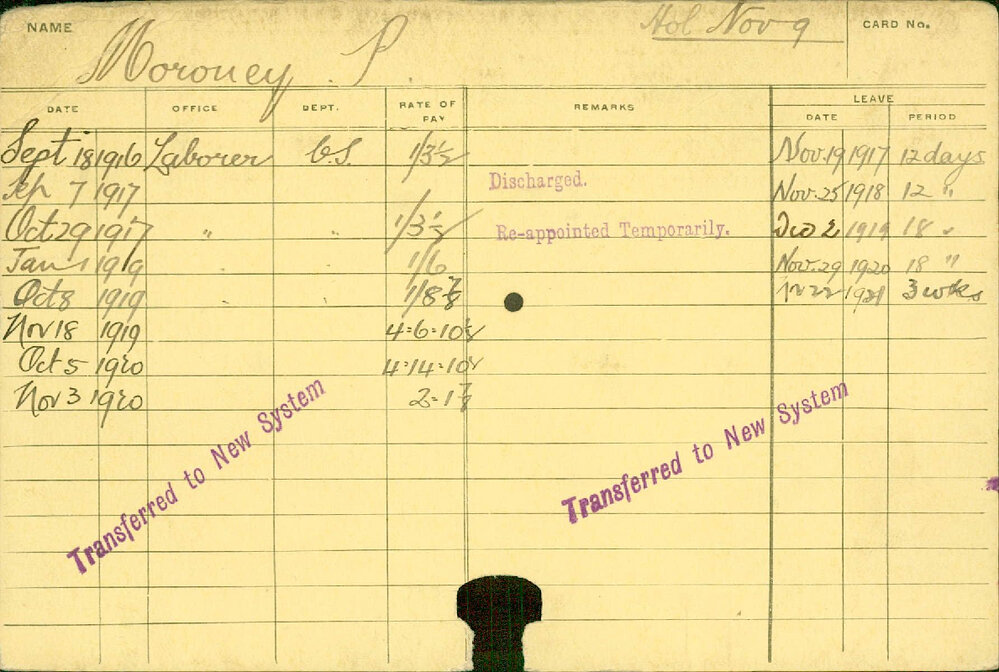 NAME Moroney. P. Hol Nov 9 CARD No.
DATE OFFICE DEPT. RATE OF PAY REMARKS LEAVE
DATE PERIOD
Sept 18 1916 Laborer G.S. 1/3½ Nov. 19 1917 12 days
Sep 7 1917 Discharged. Nov. 25 1918 12 "
Oct 29 1917 " " 1/3½ Re-appointed Temporarily. Dec 2 1919 18 "
Jan 1 1919 1/6 Nov. 29 1920 18 "
Oct 8 1919 1/8⅞ 3 wks
Nov 18 1919 4=6=10½
Oct 5 1920 4=14=10½
Nov 3 1920 2=1⅞
Transferred to New System
Transferred to New System